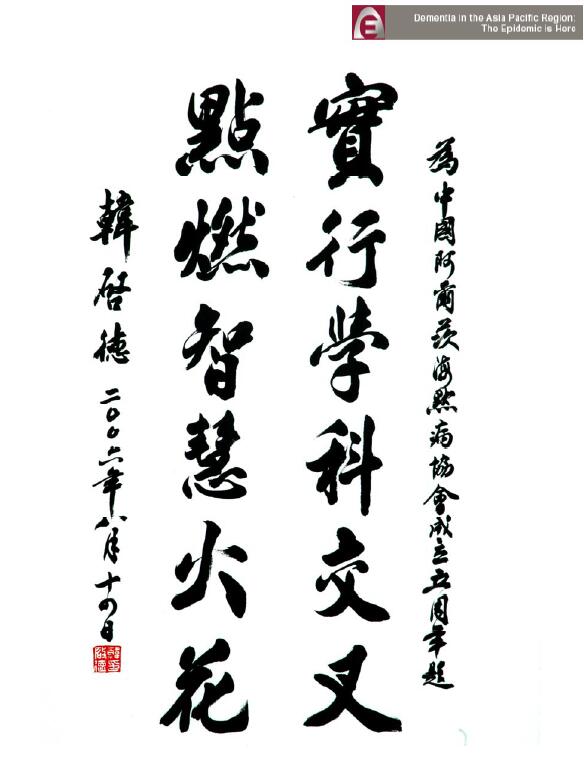 Dementia in the Asia Pacific Region:
The Epidemic is Here
為中國阿爾茨海默病協會成立五周年題
實行學科交叉
點燃智慧火花
韓啓德 二〇〇六年八月十四日